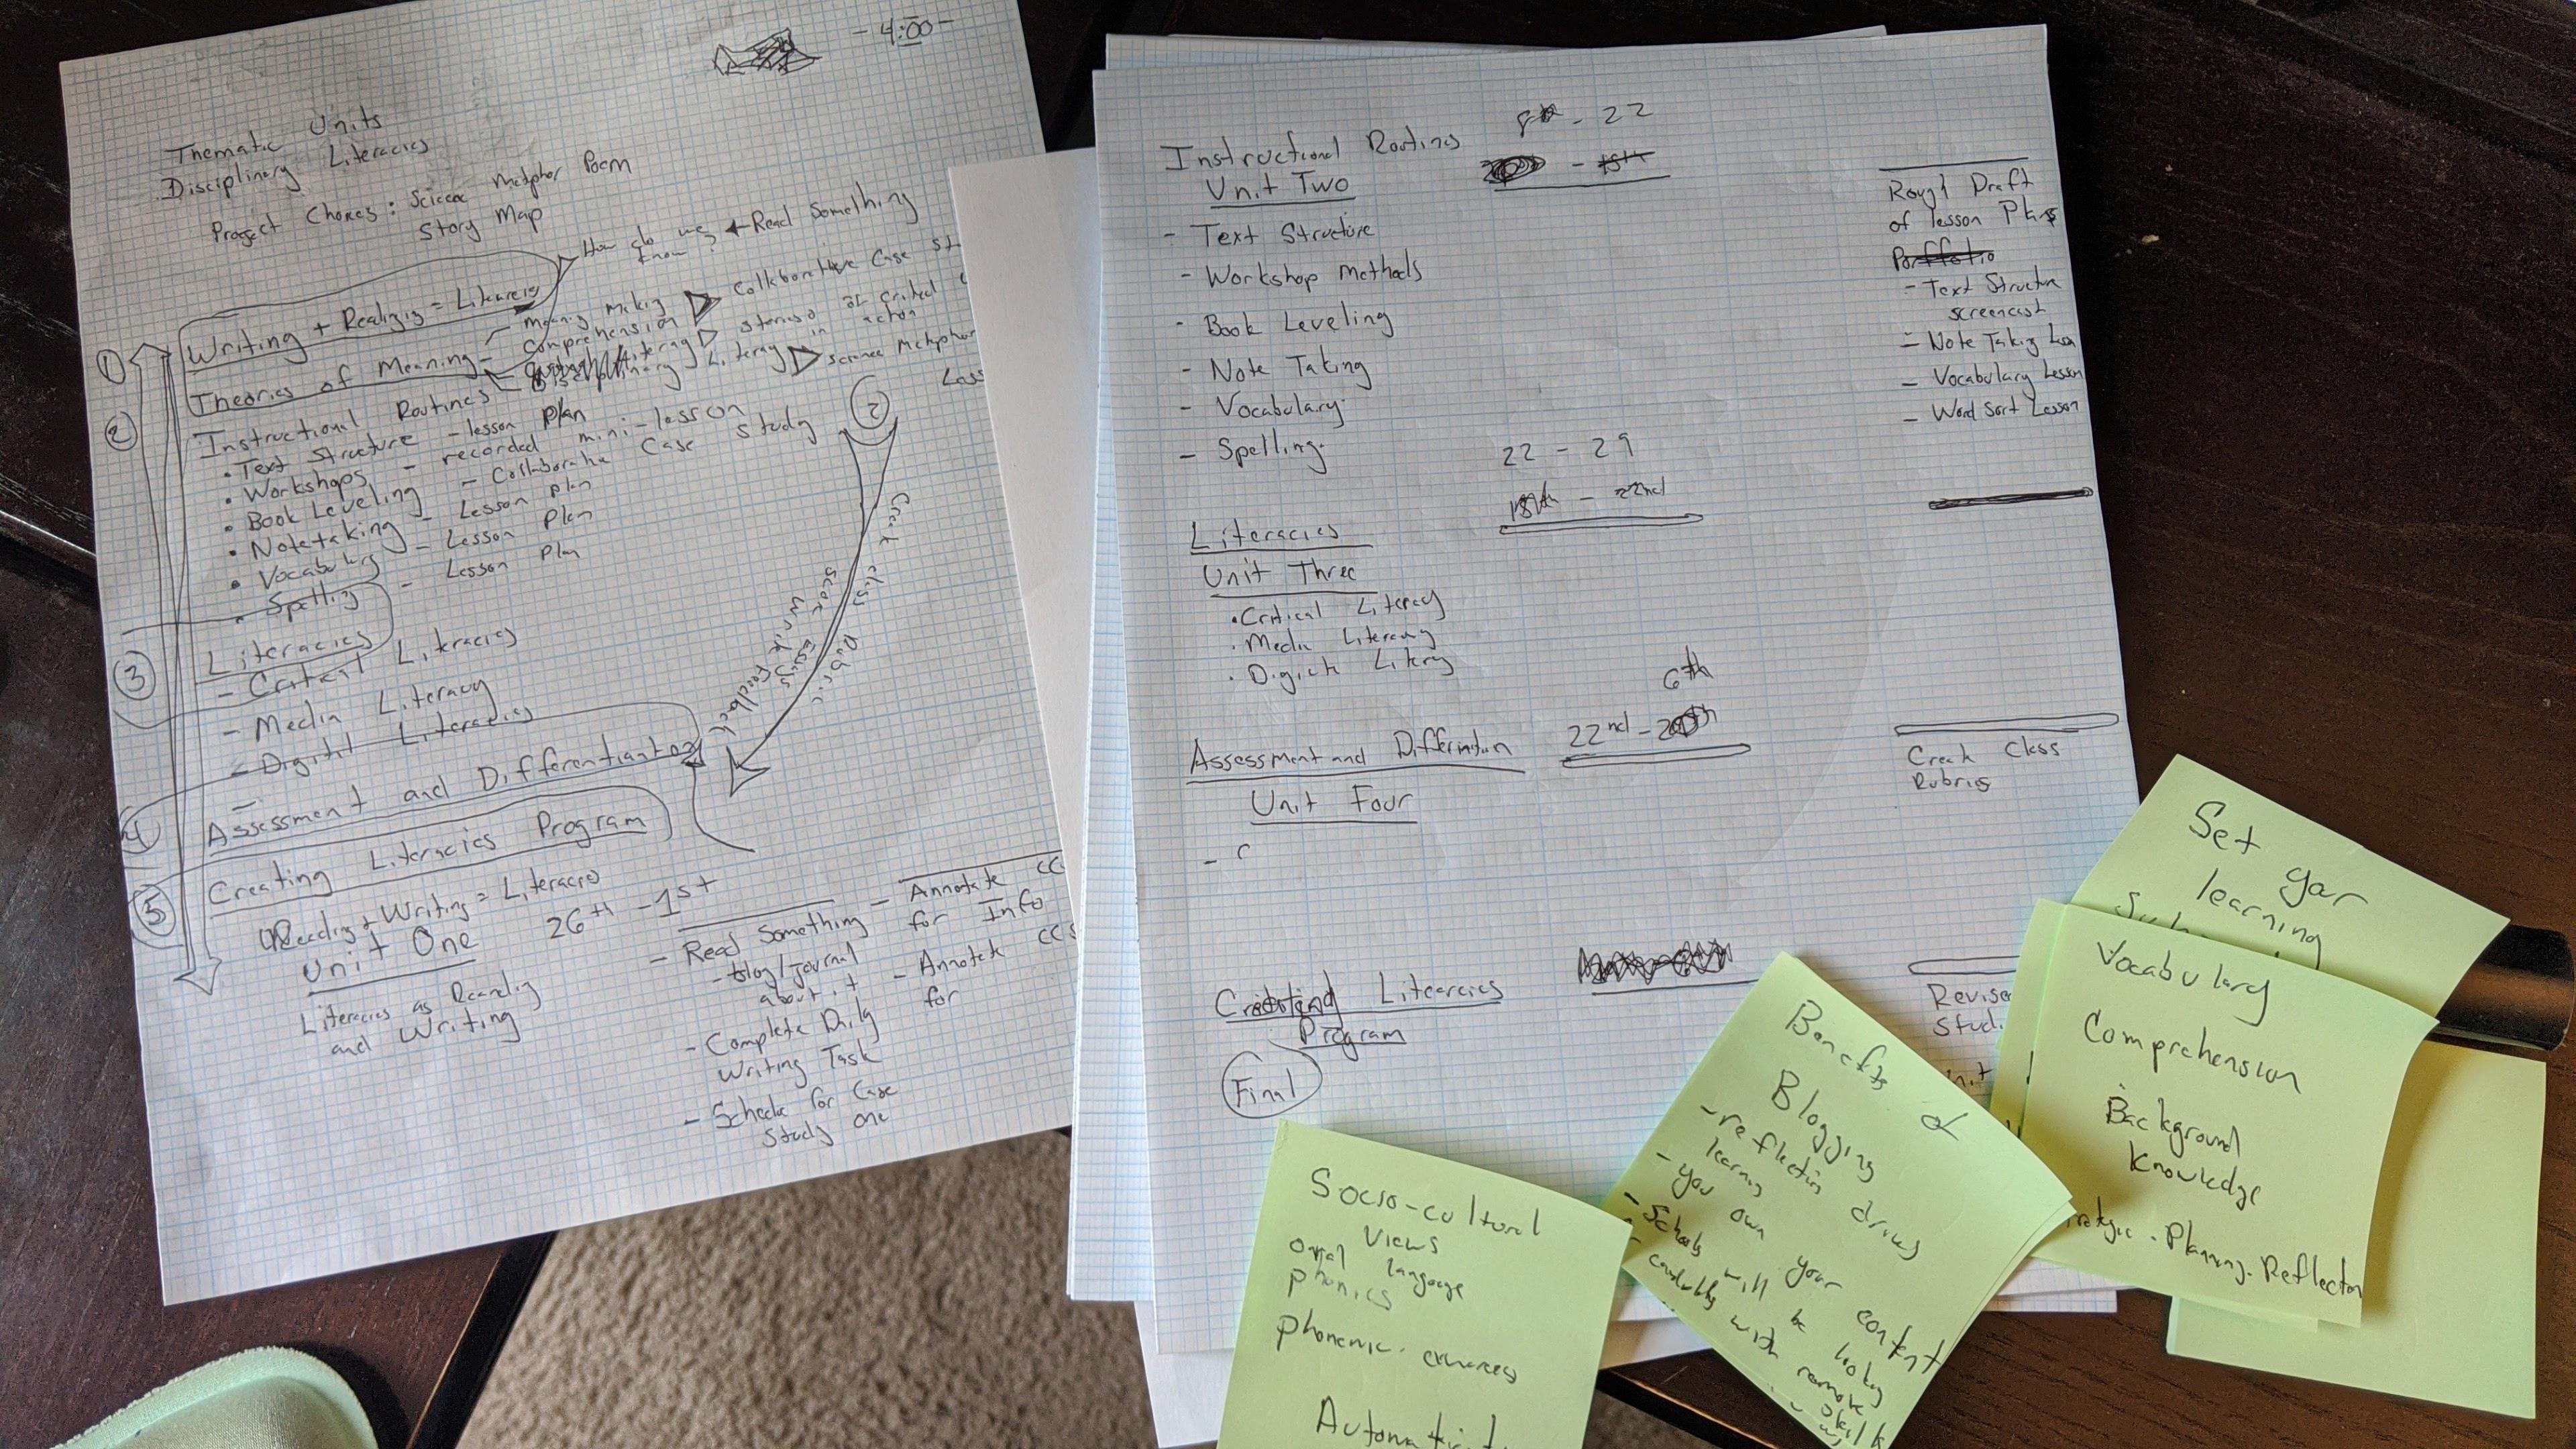 - 4:00 -
Thematic Units
Disciplinary Literacies
Project Choices: Science Metphor Poem
Story Map
How do we know? Read Something
Writing + Readigig = Literacies
Meaning Making Collaborative Case St
Comprehension
Theories of Meaning
Disciplinary Literacy Science Metphor
1
2
Instructional Routines
• Text Structure - lesson plan
• Workshops - recorded mini-lesson
• Book Leveling - Collaborative Case Study
• Notetaking - Lesson plan
• Vocabulary - Lesson Plan
• Spelling - Lesson Plan
2
Create class Rubric
Score Essays
Write Feedback
3
Literacies
- Critical Literacies
- Media Literacy
- Digital Literacies
4
Assessment and Differentiation
5
Creating Literacies Program
Reading + Writing = Literacies
Unit One
26th - 1st
Literacies as Reading
and Writing
- Read Something
- blog/journal
about it
- Complete Daily
Writing Task
- Schedule for Case
Study one
- Annotate CC
for Info
- Annotate CCS
for
Instructional Routines
Unit Two
8th - 22
- 15th
- Text Structure
- Workshop Methods
- Book Leveling
- Note Taking
- Vocabulary
- Spelling
Rough Draft
of lesson Plans
Portfolio
- Text Structure
screencast
- Note Taking
- Vocabulary Lesson
- Word Sort Lesson
22 - 29
18th - 22nd
Literacies
Unit Three
• Critical Literacy
• Media Literacy
• Digitl Litery
6th
Assessment and
22nd -
Unit Four
Creat Class
Rubrics
Literacies
Program
Final
Revise
Stud.
Set your
learning
Vocabulary
Comprehension
Background
Knowledge
Planning. Reflection
Benefits of
Blogging
- reflection drives
learning
- you own your content
- Schools will be looking
with remote
skills
Socio-cultural
Views
oral language
phonics
phonemic